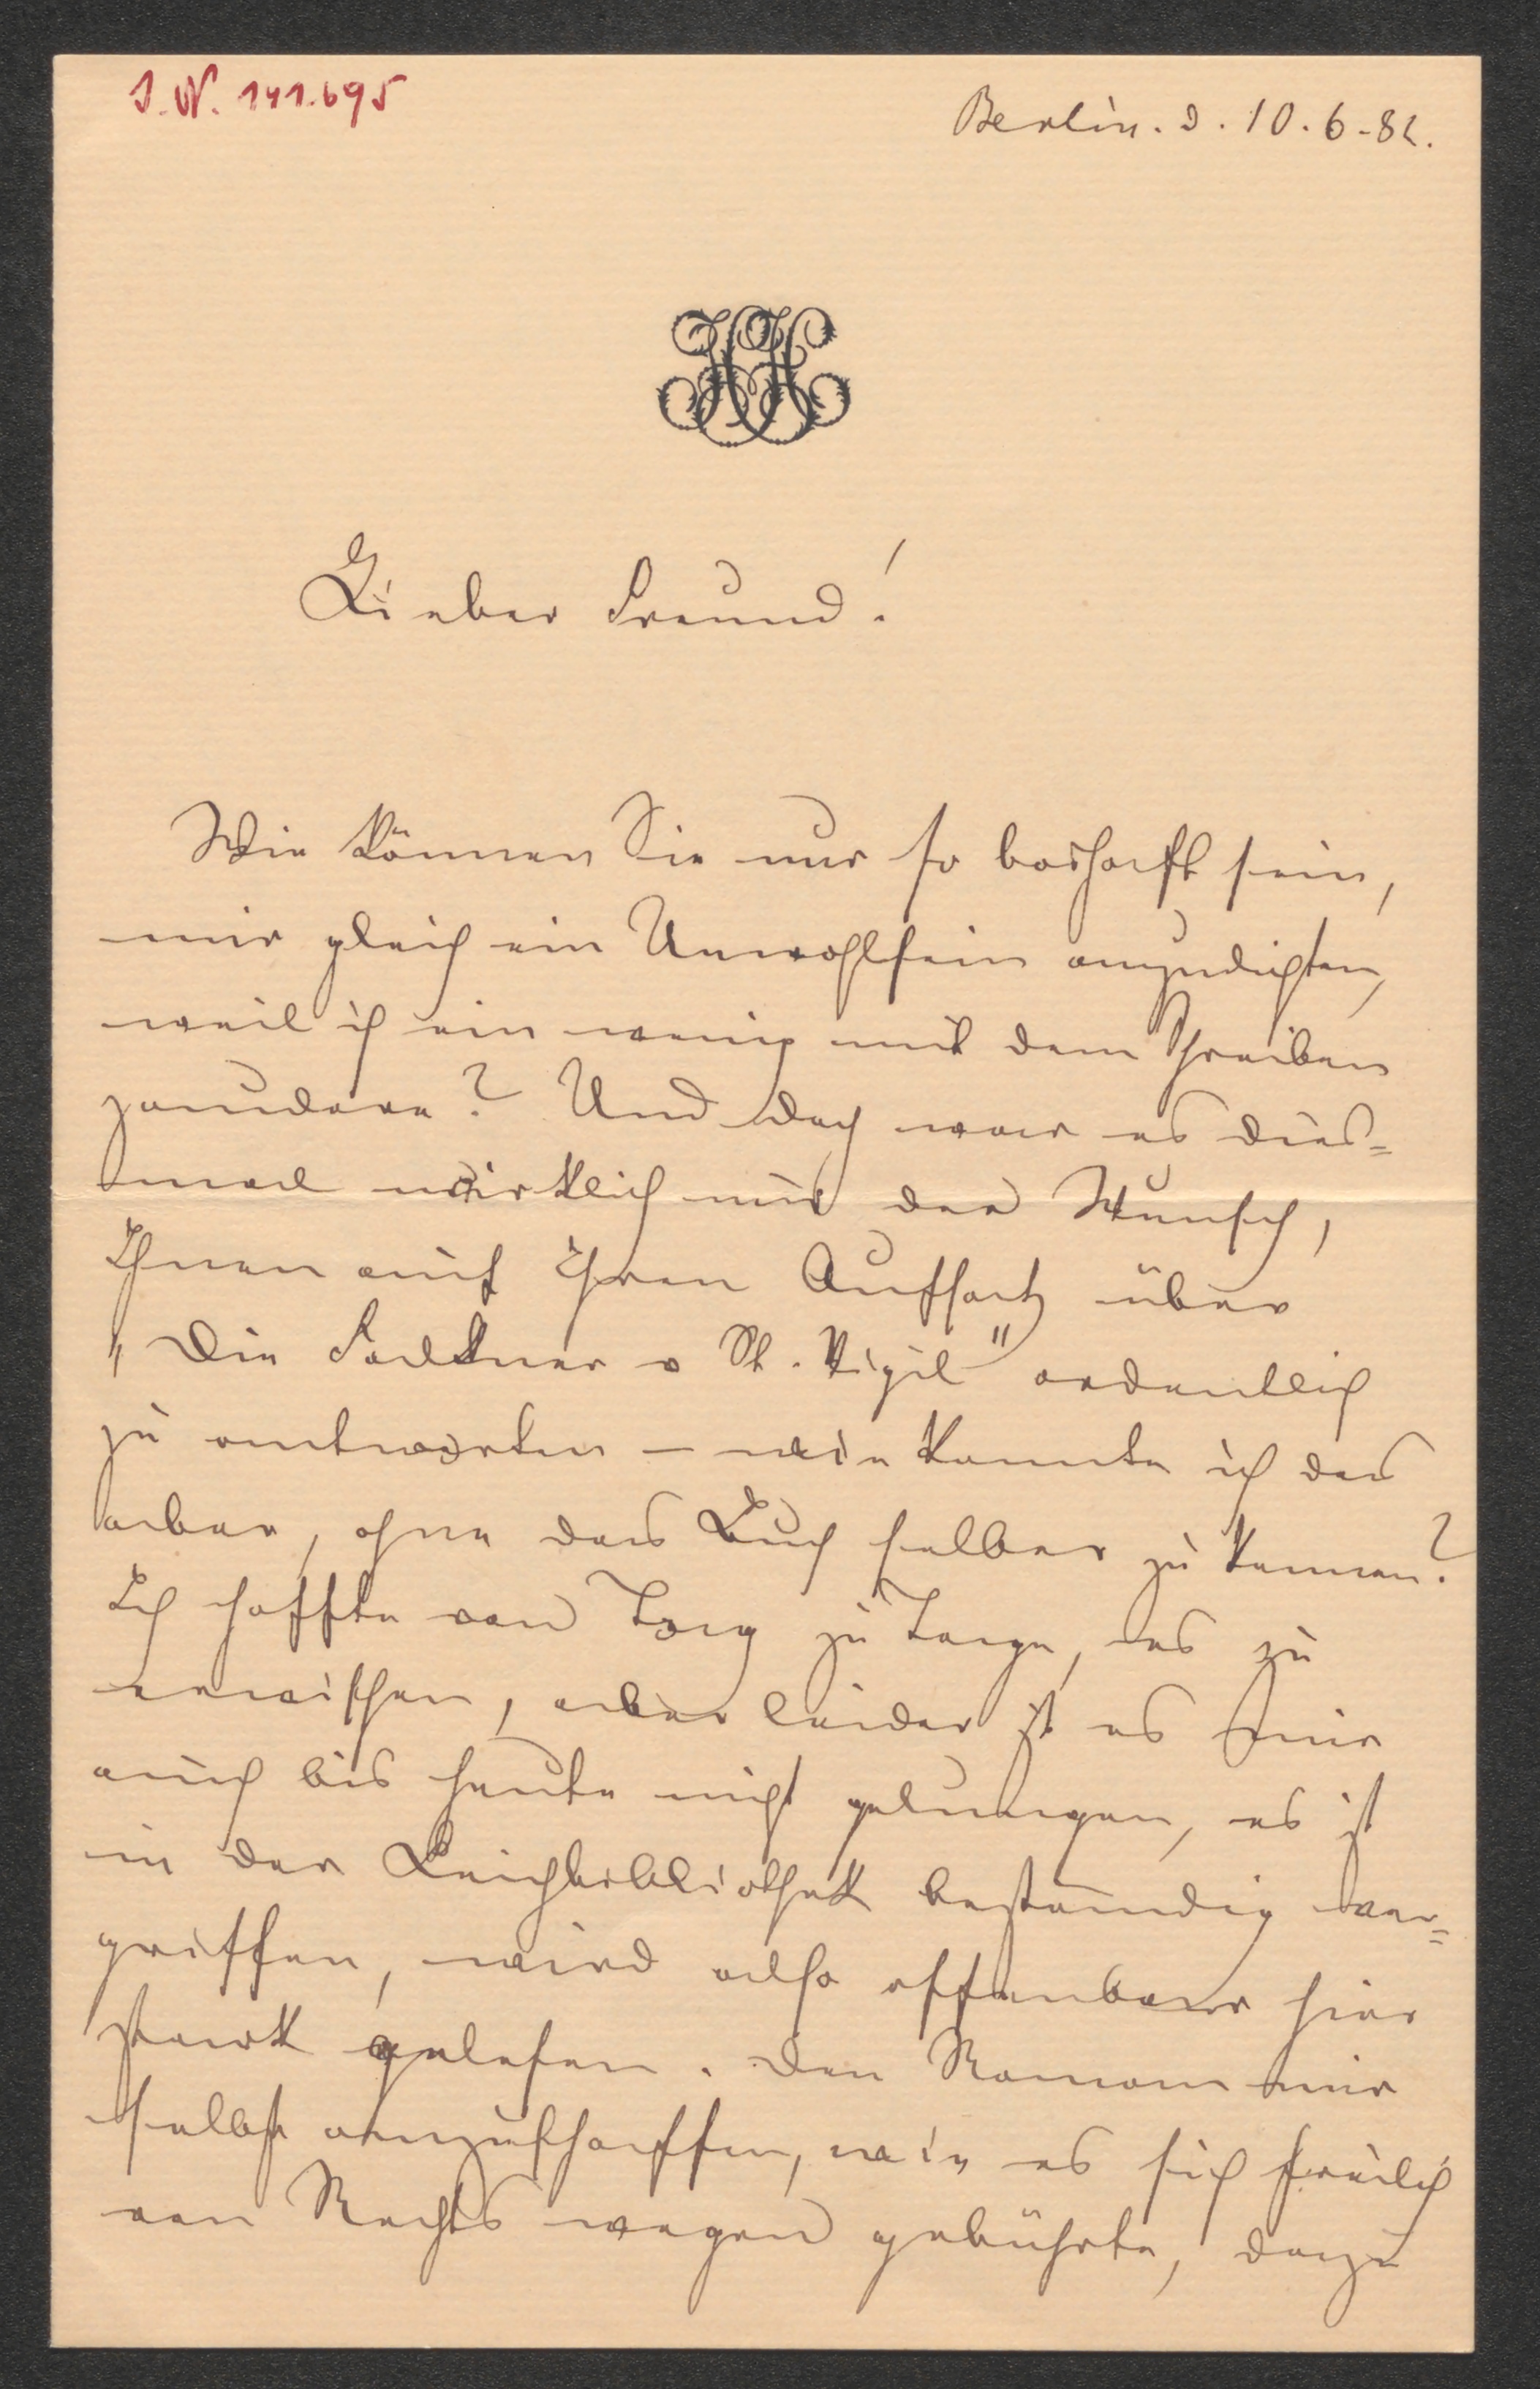 J. N. 141.695
Berlin. d. 10.6.82.
HH
Lieber Freund!
Wie können Sie nur so boshaft sein,
mir gleich ein Unwohlsein anzudichten,
weil ich ein wenig mit dem Schreiben
zaudere? Und doch war es dies=
mal wirklich nur der Wunsch,
Ihnen auf Ihren Aufsatz über
"Die Falkner v St. Vigil" ordentlich
zu antworten – wie konnte ich das
aber, ohne das Buch selber zu kennen?
Ich hoffte von Tag zu Tage, es zu
erwischen, aber leider ist es mir
auch bis heute nicht gelungen, es ist
in der Leihbibliothek beständig ver=
griffen, wird also offenbar hier
stark gelesen. Den Roman mir
selbst anzuschaffen, wie es sich freilich
von Rechts wegen gebührte, dazu